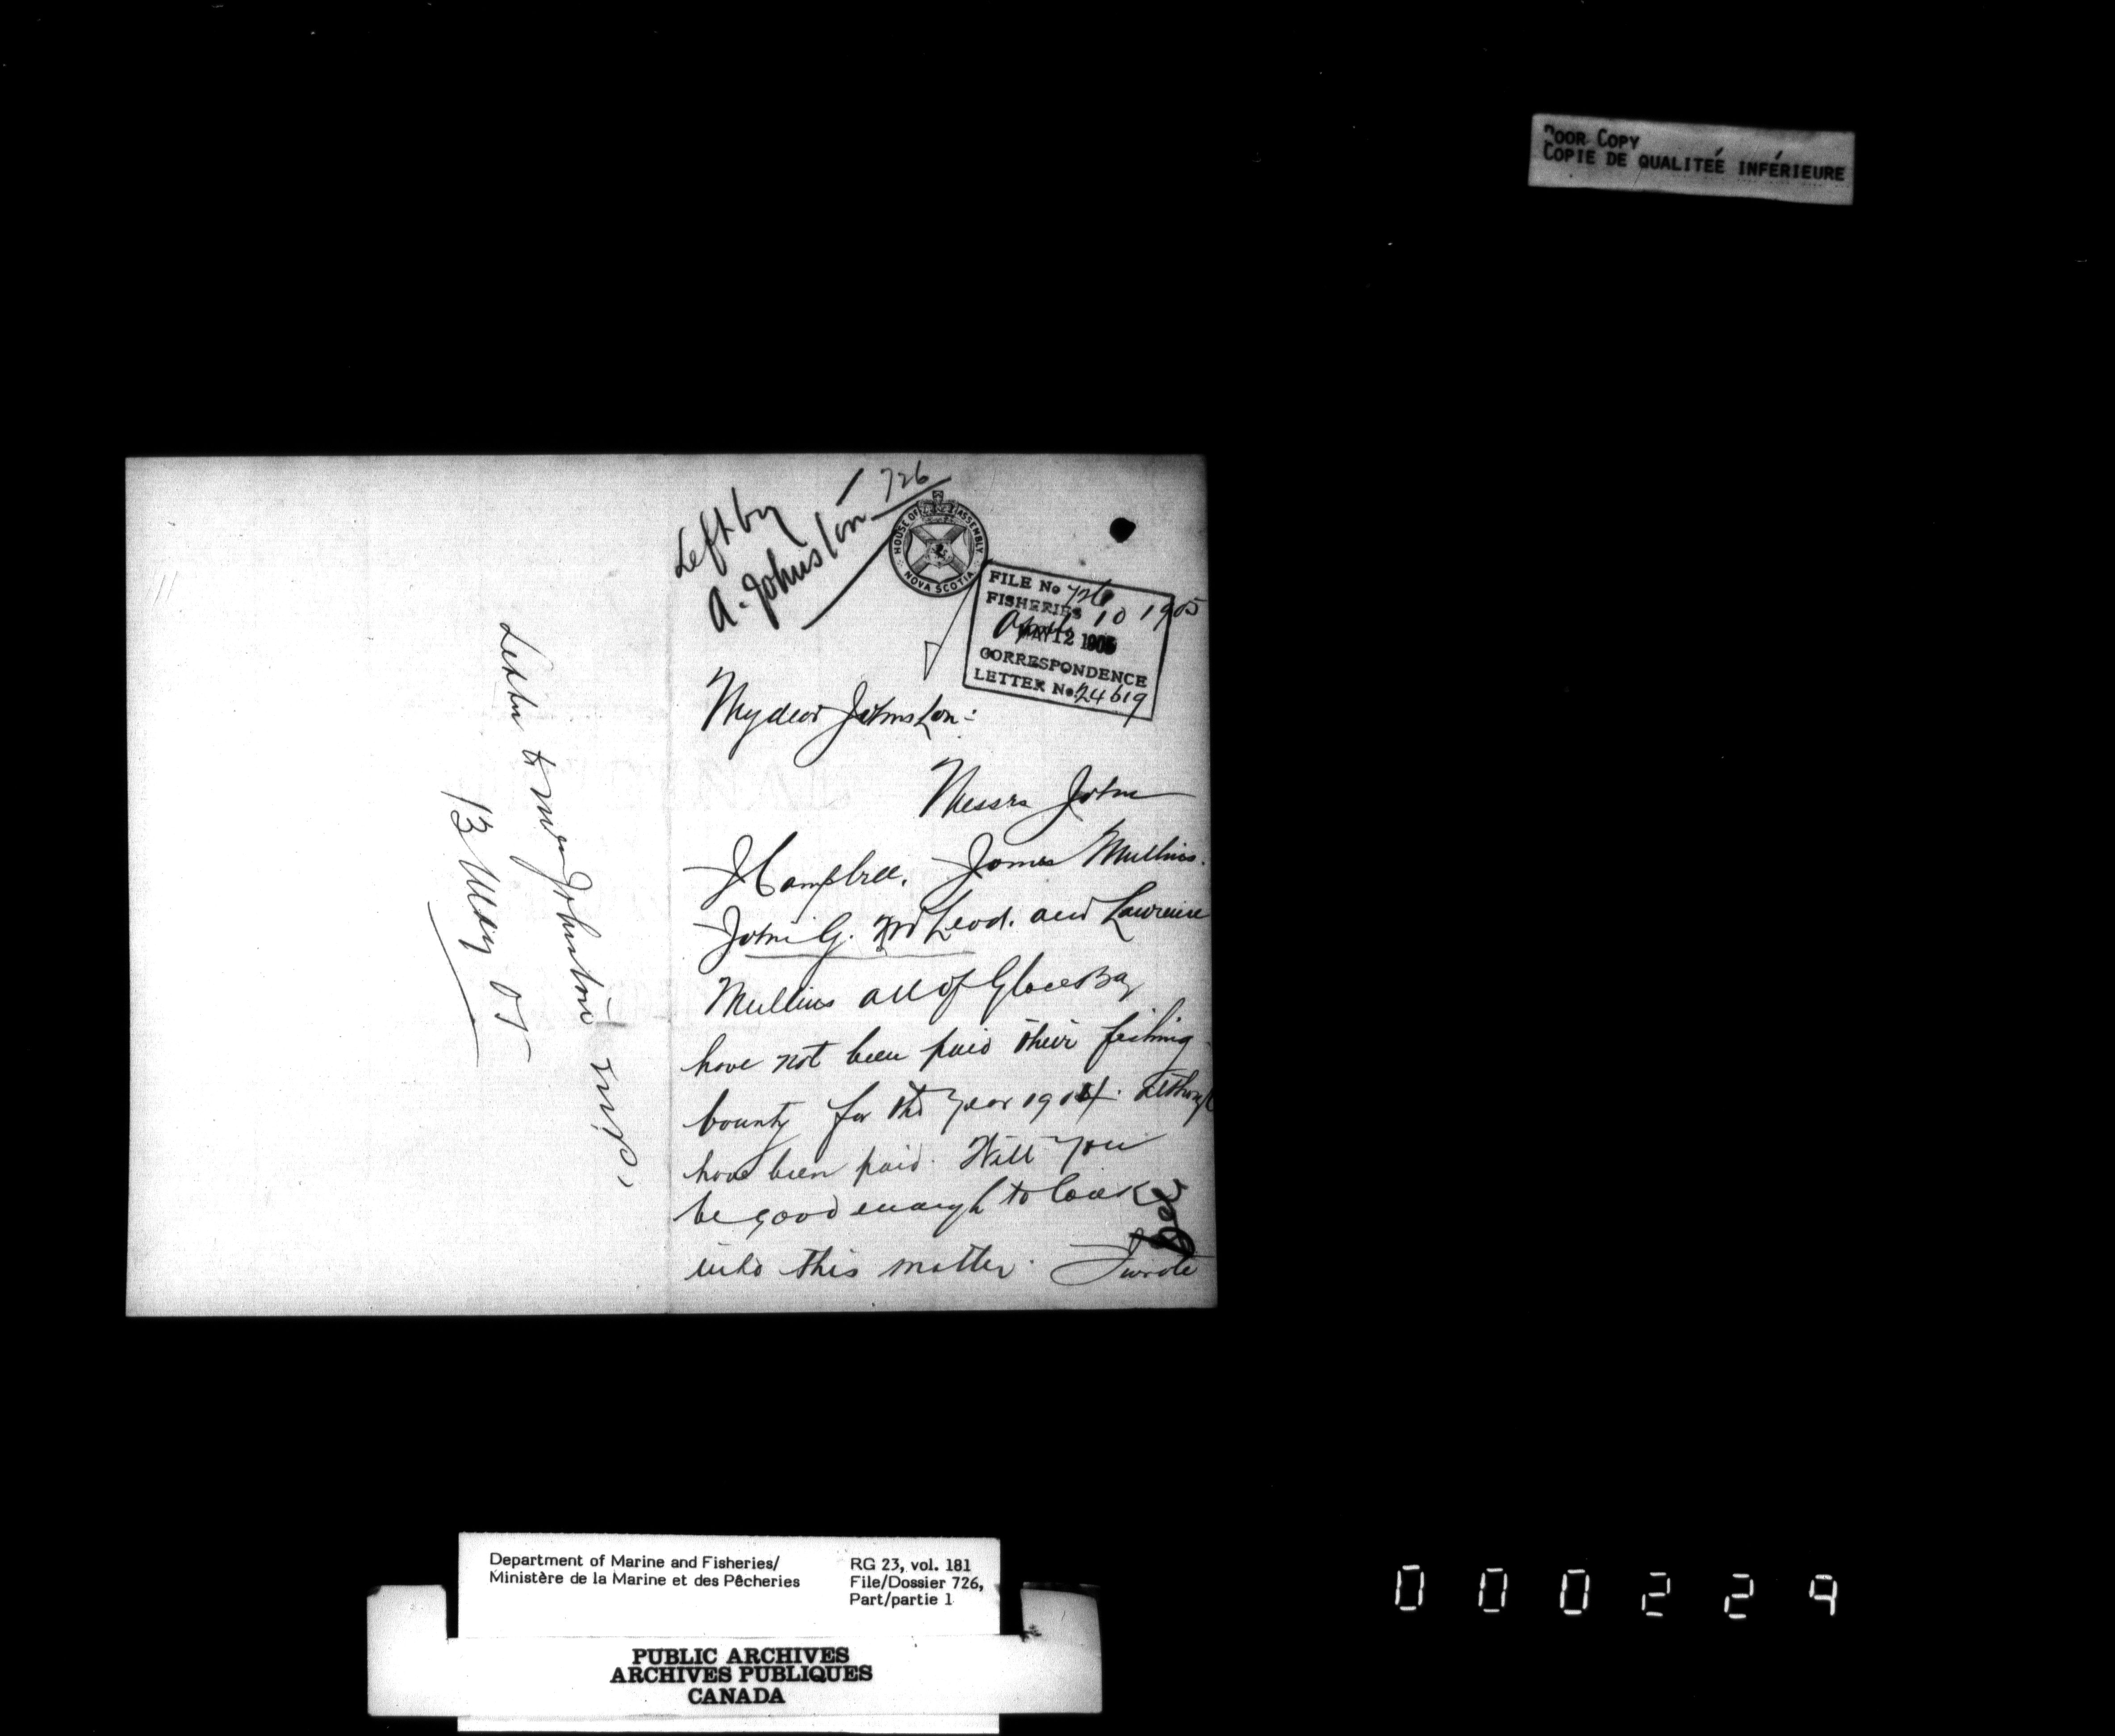 POOR COPY
COPIE DE QUALITEÉ INFÉRIEURE
726
Left by
A. Johnston
HOUSE OF ASSEMBLY
NOVA SCOTIA
FILE No 726
FISHERIES
April 10 1905
MAY 12 1905
CORRESPONDENCE
LETTER No. 24619
My dear Johnston:
Messrs John
J Campbell, James Mullins.
John G. McLeod. and Lawrence
Mullins all of Glace Bay
have not been paid their fishing
bounty for the year 1904. although
have been paid. Will you
be good enough to look
into this matter. I wrote
Letter to Johnston M.P.
13 May 05
Department of Marine and Fisheries/
Ministère de la Marine et des Pêcheries
RG 23, vol. 181
File/Dossier 726,
Part/partie 1
PUBLIC ARCHIVES
ARCHIVES PUBLIQUES
CANADA
000229